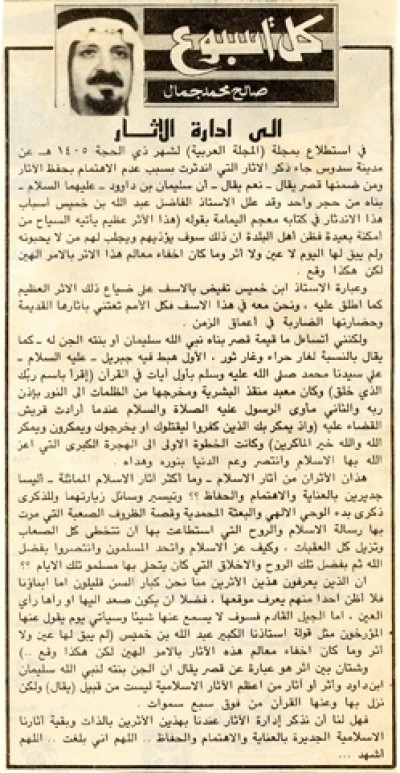 كل أسبوع
صالح محمد جمال
الى ادارة الآثار
في استطلاع بمجلة (المجلة العربية) لشهر ذي الحجة ١٤٠٥ هـ عن
مدينة سدوس جاء ذكر الاثار التي اندثرت بسبب عدم الاهتمام بحفظ الآثار
ومن ضمنها قصر يقال ـ نعم يقال ـ ان سليمان بن داوود ـ عليهما السلام ـ
بناه من حجر واحد وقد علل الاستاذ الفاضل عبد الله بن خميس اسباب
هذا الاندثار في كتابه معجم اليمامة بقوله (هذا الأثر عظيم يأتيه السياح من
امكنة بعيدة فظن أهل البلدة ان ذلك سوف يؤذيهم ويجلب لهم من لا يحبونه
ولم يبق لها اليوم لا عين ولا اثر وما كان اخفاء معالم هذا الاثر بالامر الهين
لكن هكذا وقع .
وعبارة الاستاذ ابن خميس تفيض بالاسف على ضياع ذلك الاثر العظيم
كما اطلق عليه ، ونحن معه في هذا الاسف فكل الأمم تعتني بآثارها القديمة
وحضارتها الضاربة في أعماق الزمن .
ولكنني أتساءل ما قيمة قصر بناه نبي الله سليمان أو بنته الجن له ـ كما
يقال بالنسبة لغار حراء وغار ثور ، الأول هبط فيه جبريل ـ عليه السلام ـ
على سيدنا محمد صلى الله عليه وسلم بأول آيات في القرآن (إقرأ باسم ربك
الذي خلق) وكان معبد منقذ البشرية ومخرجها من الظلمات الى النور بإذن
ربه والثاني مأوى الرسول عليه الصلاة والسلام عندما أرادت قريش
القضاء عليه (واذ يمكر بك الذين كفروا ليثبتوك او يقتلوك او يخرجوك ويمكرون ويمكر
الله والله خير الماكرين) وكانت الخطوة الاولى الى الهجرة الكبرى التي اعز
الله بها الاسلام وانتصر وعم الدنيا بنوره وهداه .
هذان الأثران من آثار الاسلام ـ وما اكثر آثار الاسلام المماثلة ـ اليسا
جديرين بالعناية والاهتمام والحفاظ ؟؟ وتيسير وسائل زيارتهما وللذكرى
ذكرى بدء الوحي الالهي والبعثة المحمدية وقصة الظروف الصعبة التي مرت
بها رسالة الاسلام والروح التي استطاعت بها ان تتخطى كل الصعاب
وتزيل كل العقبات ، وكيف عز الاسلام واتحد المسلمون وانتصروا بفضل
الله ثم بفضل تلك الروح والاخلاق التي كان يتحلى بها مسلمو تلك الايام ؟؟
ان الذين يعرفون هذين الأثرين منا نحن كبار السن قليلون اما ابناؤنا
فلا أظن احدا منهم يعرف موقعها ، فضلا ان يكون صعد اليها او رآها رأي
العين ، اما الجيل القادم فسوف لا يسمع عنها شيئا وسيأتي يوم يقول عنها
المؤرخون مثل قولة استاذنا الكبير عبد الله بن خميس (لم يبق لها عين ولا
اثر وما كان اخفاء معالم هذه الآثار بالامر الهين لكن هكذا وقع ..)
وشتان بين اثر هو عبارة عن قصر يقال ان الجن بنته لنبي الله سليمان
ابن داود واثر او آثار من اعظم الآثار الاسلامية ليست من قبيل (يقال) ولكن
نزل بها وعنها القرآن من فوق سبع سموات .
فهل لنا ان نذكر إدارة الآثار عندنا بهذين الأثرين بالذات وبقية آثارنا
الاسلامية الجديرة بالعناية والاهتمام والحفاظ .. اللهم اني بلغت .. اللهم
اشهد ...